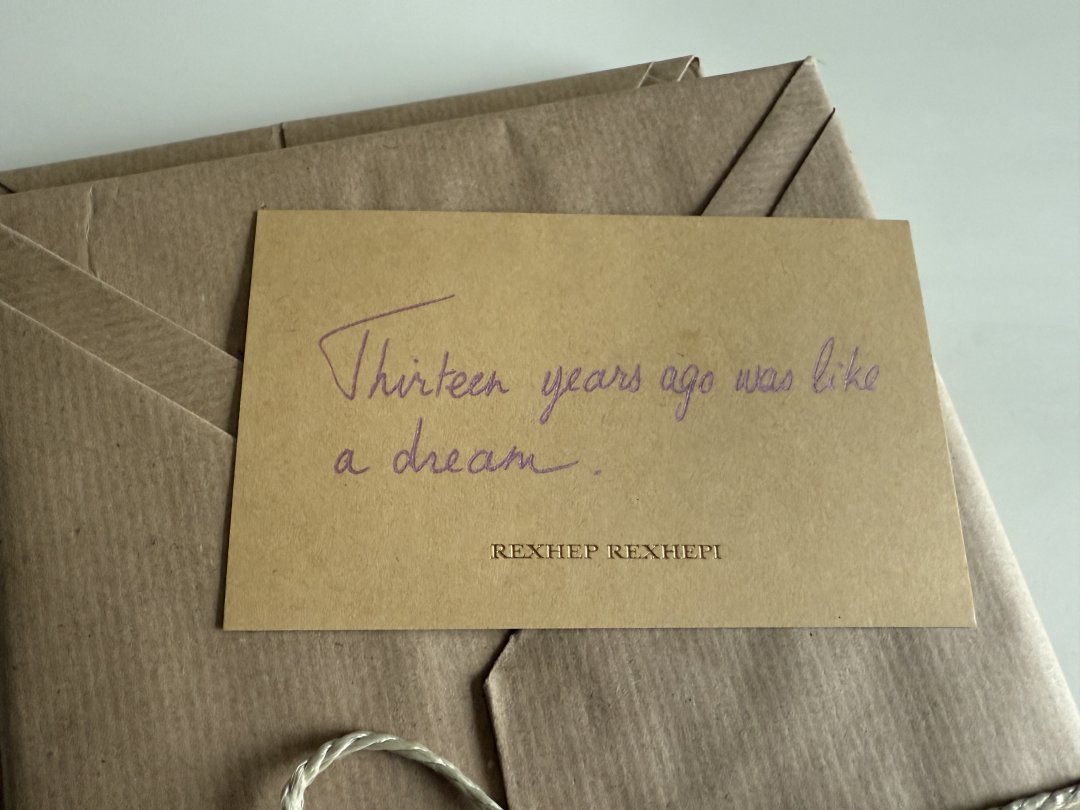 Thirteen years ago was like
a dream.
REXHEP REXHEPI